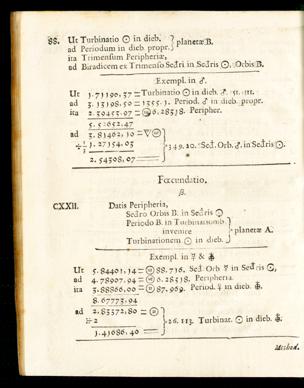 88. Ut Turbinatio ☉ in dieb. } planetæ B.
ad Periodum in dieb. propr.
ita Trimensum Peripheriæ,
ad Biradicem ex Trimenso Sedri in Sedris ☉. Orbis B.
Exempl. in ♂.
Ut 1.71190.37 = Turbinatio ☉ in dieb. ♂. 51. 111.
ad 3.13198.50 = 1355.1. Period. ♂ in dieb. propr.
ita 2.39453.97 = 6.28318. Peripher.
5.52652.47
ad 3.81462.10 =
÷ 1/3 1.27154.03 } 349.20. Sed. Orb. ♂ in Sedris ☉.
2.54308.07
Fœcundatio.
β.
CXXII. Datis Peripheria,
Sedro Orbis B. in Sedris ☉
Periodo B. in Turbinationib.
invenire } planetæ A.
Turbinationem ☉ in dieb.
Exempl. in ☿ &
Ut 5.84401.14 = 88.716. Sed. Orb ☿ in Sedris ☉,
ad 4.78907.94 = 6.28318. Peripheria.
ita 3.88866.00 = 87.969. Period. ☿ in dieb.
8.67773.94
ad 2.83372.80 =
÷ 2 } 26.113. Turbinat. ☉ in dieb.
1.41686.40
Method.